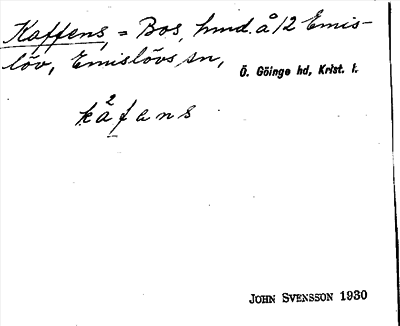 Kaffens, = Bos, hmd. å 12 Emis-
löv, Emislövs sn,
Ö. Göinge hd, Krist. l.
kå²fans
JOHN SVENSSON 1930